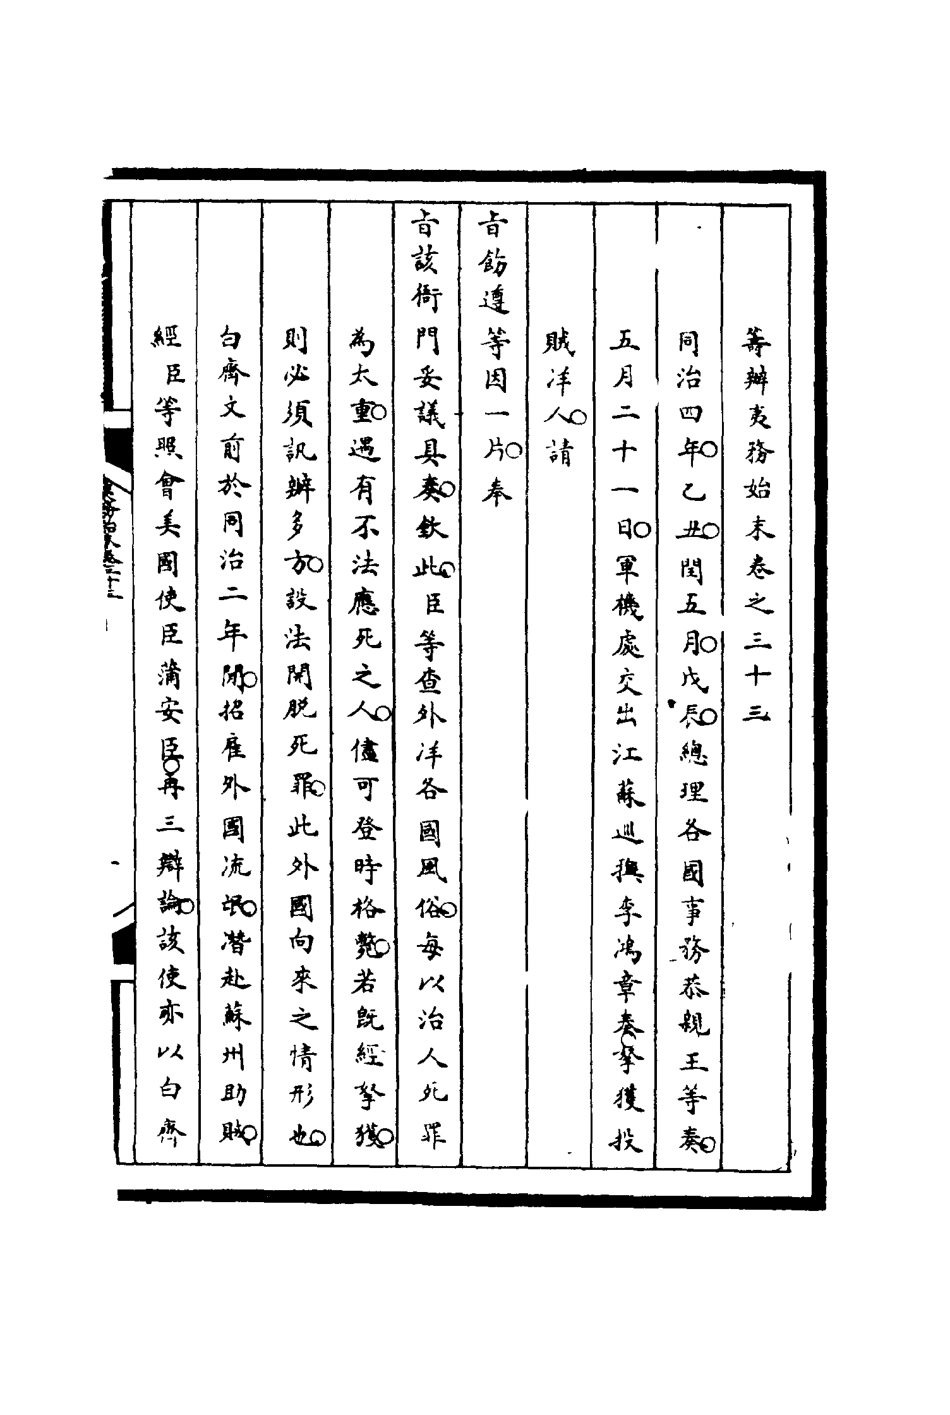 籌辦夷務始末卷之三十三
同治四年。乙丑。閏五月。戊辰。總理各國事務恭親王等奏。
五月二十一日。軍機處交出江蘇巡撫李鴻章奏。拏獲投
賊洋人。請
旨飭遵等因一片。奉
旨該衙門妥議具奏。欽此。臣等查外洋各國風俗。每以治人死罪
為太重。遇有不法應死之人。儘可登時格斃。若既經拏獲。
則必須訊辦多方。設法開脫死罪。此外國向來之情形也。
白齊文前於同治二年間。招雇外國流氓。潛赴蘇州助賊。
經臣等照會美國使臣蒲安臣。再三辯論。該使亦以白齊